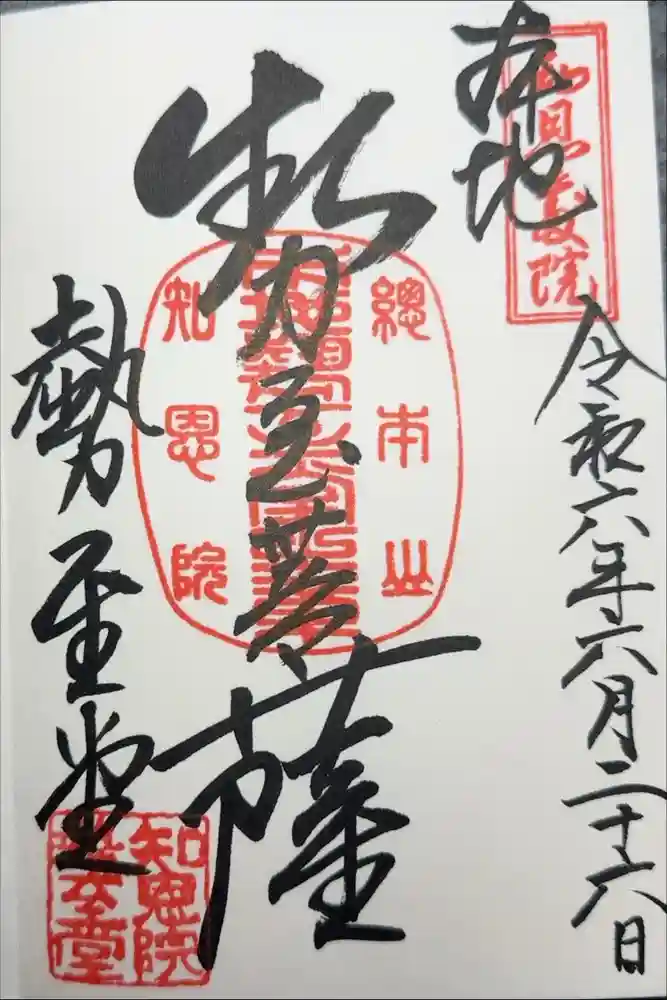 本地
令和六年六月二十六日
勢至菩薩
勢至堂
總本山
知恩院
知恩院
勢至堂